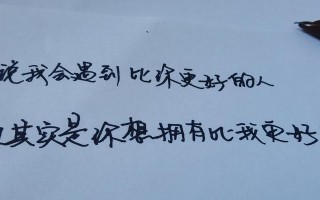 说我会遇到比你更好的人
其实是你想拥有比我更好